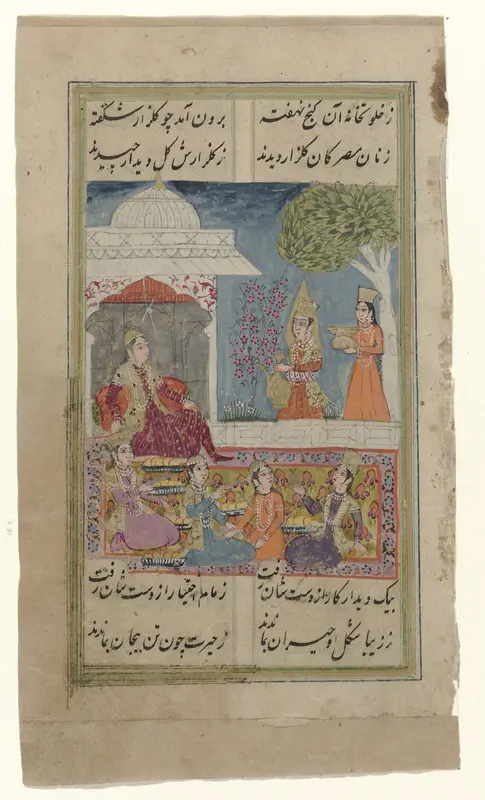 ز خلوتخانه آن کنج نهفته
برون آمد چو گلزار شکفته
زنان مصر کان گلزار دیدند
ز گلزارش گل دیدار چیدند
بیک دیدار کار از دست شان رفت
زمام اختیار از دست شان رفت
ز زیبا شکل او حیران بماندند
ز حیرت چون تن بیجان بماندند